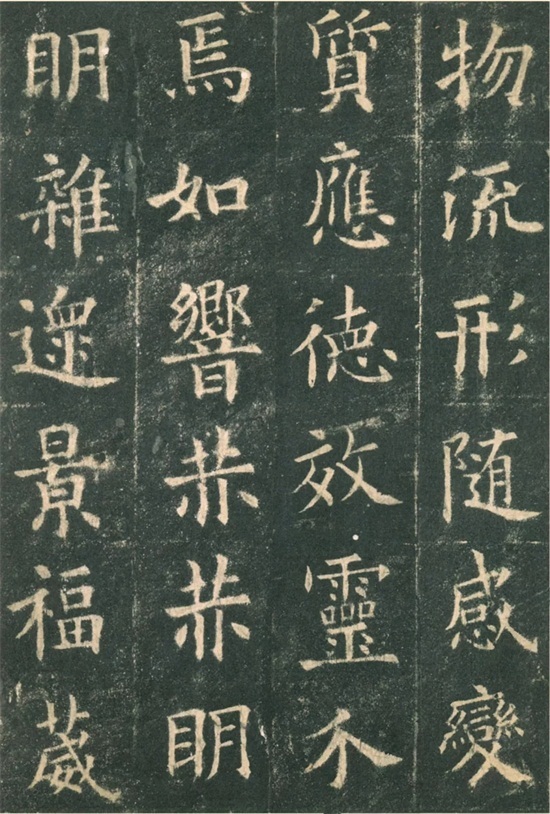 物流形随感變
質應德效靈介
焉如響赫赫明
明雜遝景福葳